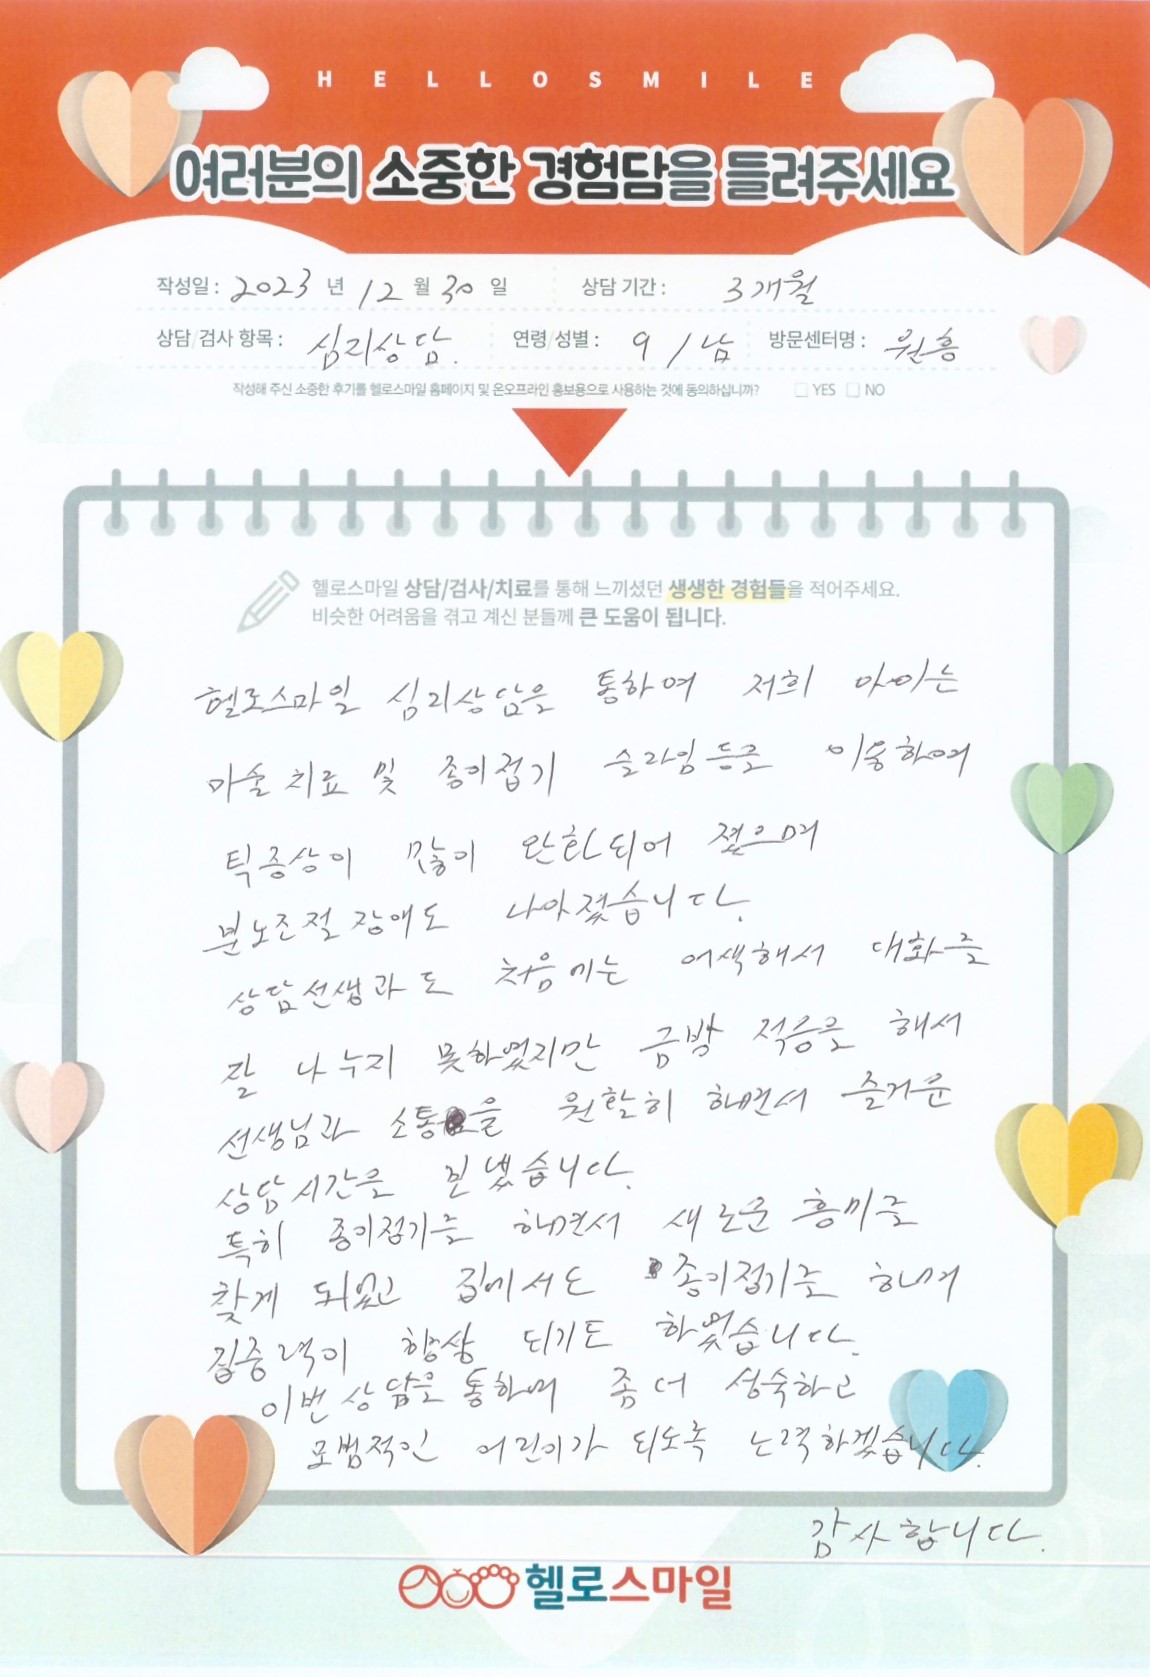 HELLOSMILE
여러분의 소중한 경험담을 들려주세요
작성일 : 2023 년 12 월 30 일 상담 기간 : 3개월
상담/검사 항목 : 심리상담. 연령/성별 : 9 / 남 방문센터명 : 원흥
작성해 주신 소중한 후기를 헬로스마일 홈페이지 및 온오프라인 홍보용으로 사용하는 것에 동의하십니까? □ YES □ NO
헬로스마일 상담/검사/치료를 통해 느끼셨던 생생한 경험들을 적어주세요.
비슷한 어려움을 겪고 계신 분들께 큰 도움이 됩니다.
헬로스마일 심리상담을 통하여 저희 아이는
마술치료 및 종이접기 슬라임등을 이용하여
틱증상이 많이 완화되어 졌으며
분노조절장애도 나아졌습니다.
상담선생과도 처음에는 어색해서 대화를
잘 나누지 못하였지만 금방 적응을 해서
선생님과 소통을 원활히 하면서 즐거운
상담시간을 보냈습니다.
특히 종이접기를 하면서 새로운 흥미를
찾게 되었고 집에서도 종이접기를 하며
집중력이 향상 되기도 하였습니다.
이번 상담을 통하여 좀 더 성숙하고
모범적인 어린이가 되도록 노력하겠습니다.
감사합니다.
헬로스마일